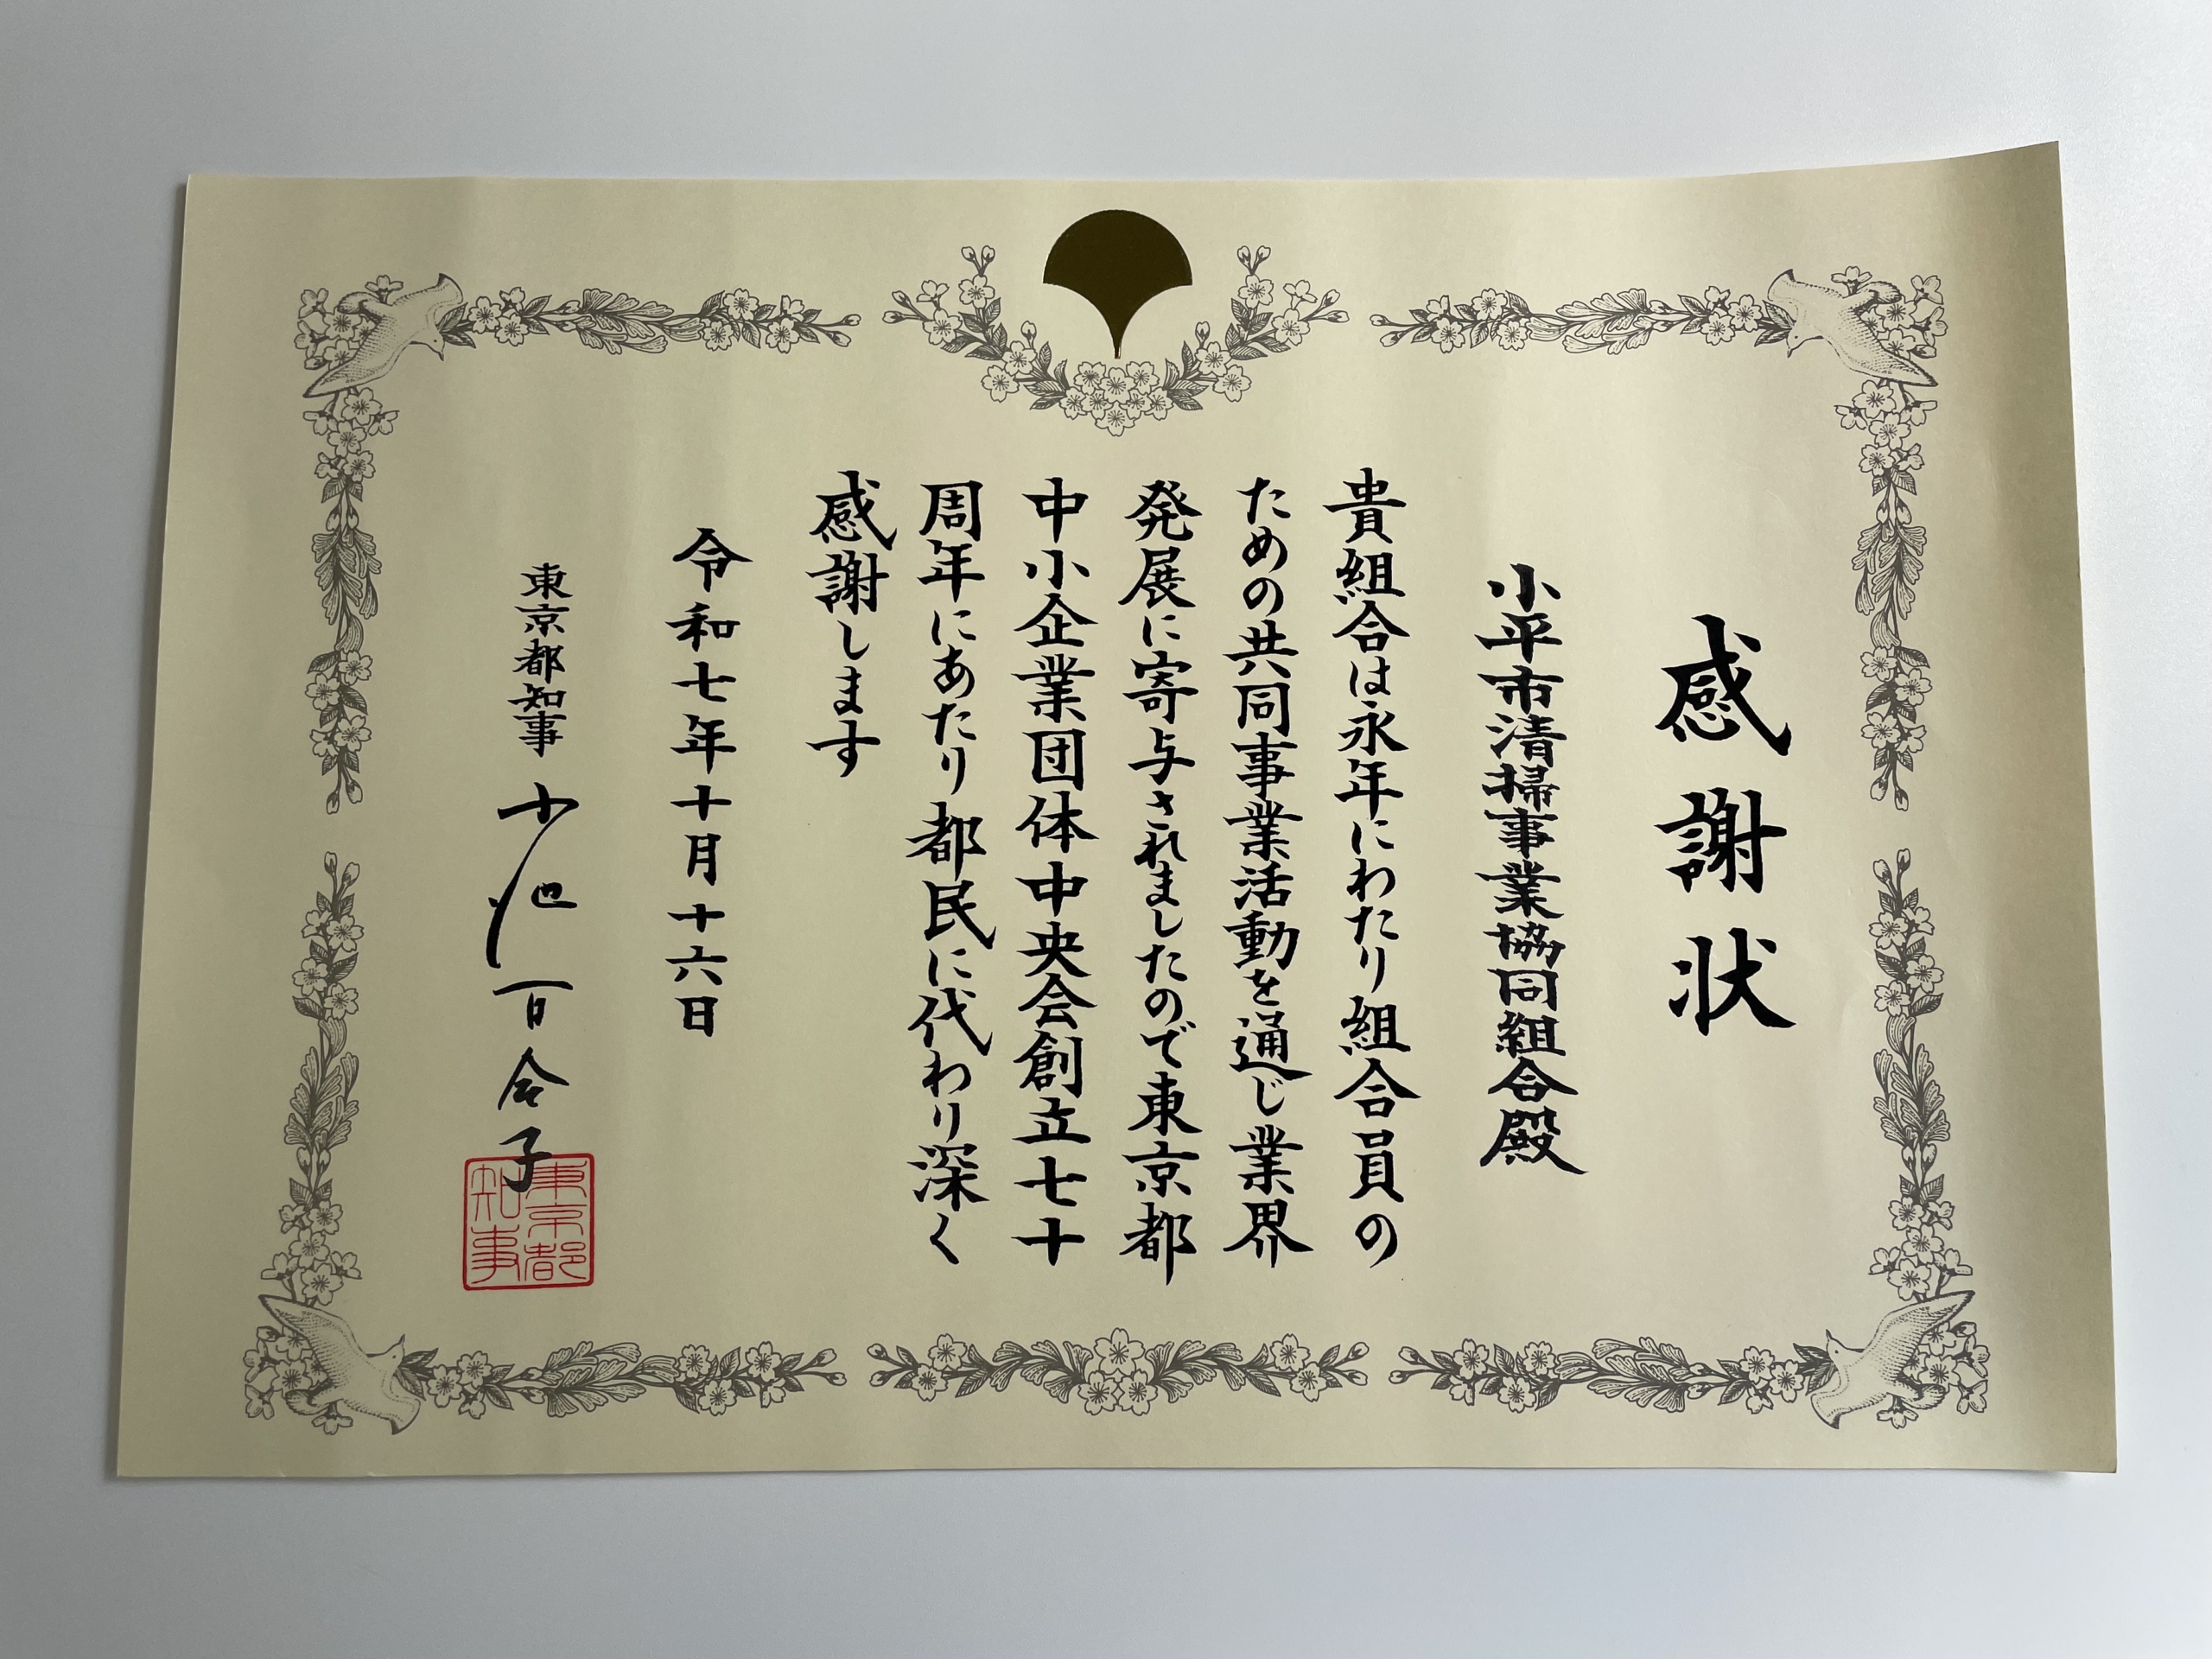 感謝状
小平市清掃事業協同組合殿
貴組合は永年にわたり組合員の
ための共同事業活動を通じ業界
発展に寄与されましたので東京都
中小企業団体中央会創立七十
周年にあたり都民に代わり深く
感謝します
令和七年十月十六日
東京都知事 小池百合子
東京都
知事